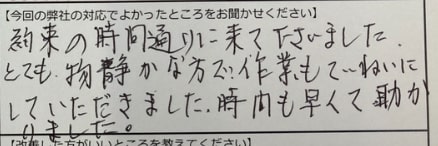 【今回の弊社の対応でよかったところをお聞かせください】
約束の時間通りに来て下さいました.
とても物静かな方で作業もていねいに
していただきました.時間も早くて助か
りました。
【改善した方がいいところを教えてください】